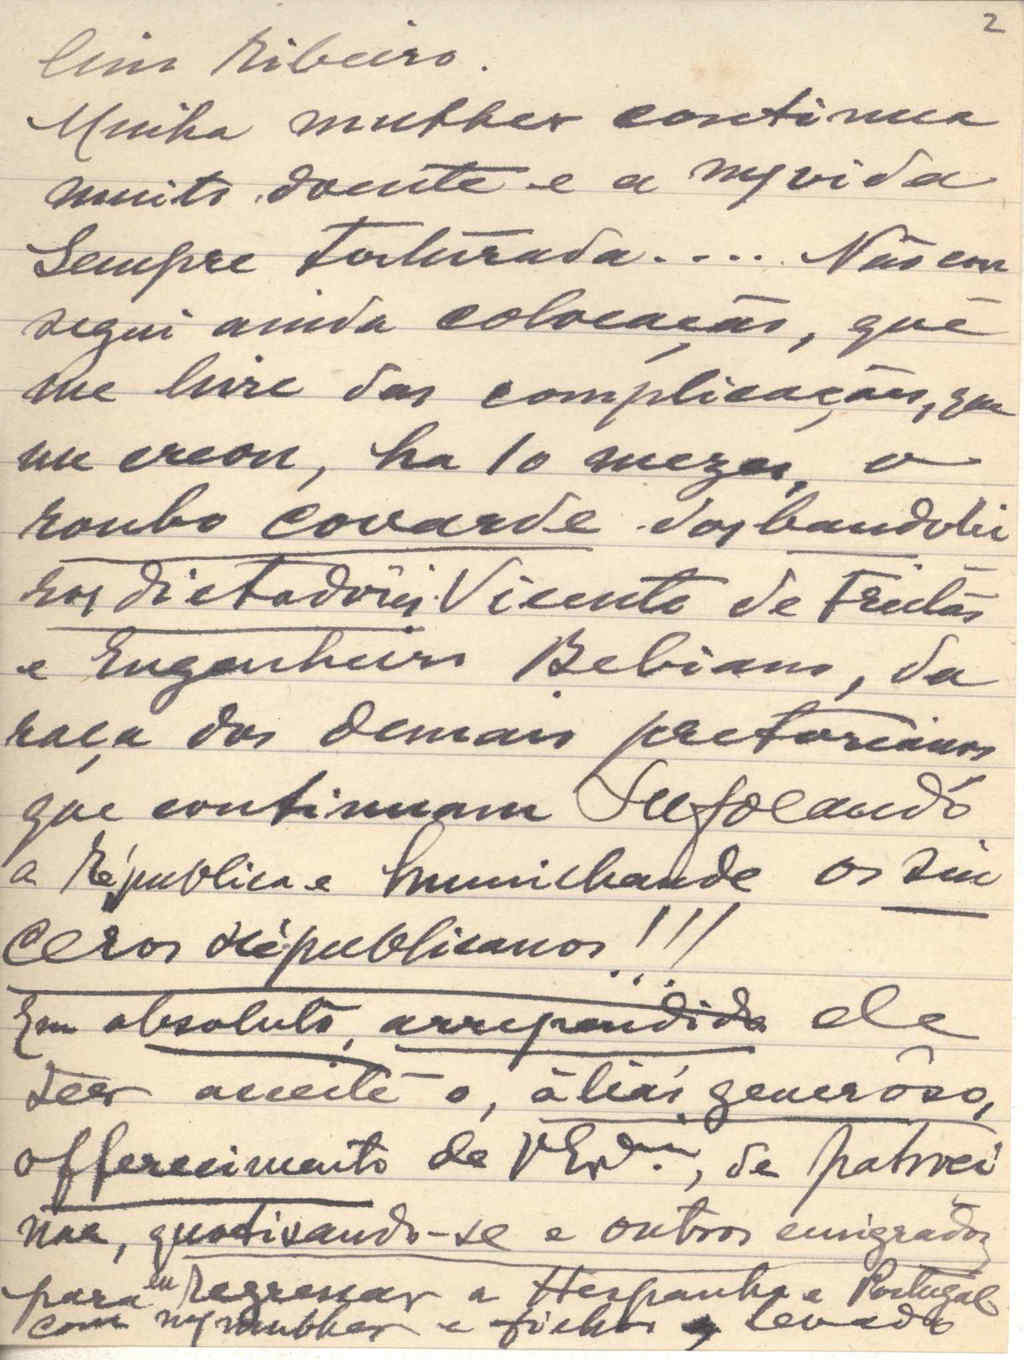 2
Ribeiro.
Minha mulher continua
muito doente e a m/ vida
Sempre torturada.... Não con
segui ainda colocação, que
me livre das complicações, que
me creou, ha 10 mezes, o
roubo covarde dos bandolei
ros dictadores Vicente de Freitas
e Engenheiro Bebiano, da
raça dos demais pretorianos
que continuam Sufocando
a República e humilhando os sin
ceros républicanos!!!
Em absoluto, arrependido de
ter aceite o, áliás generôso,
offerecimento de V Ex.ª, de patroci
nar, quotisando-se e outros emigrados
para eu Regressar a Hespanha e Portugal
com m/ mulher e filhos, levado